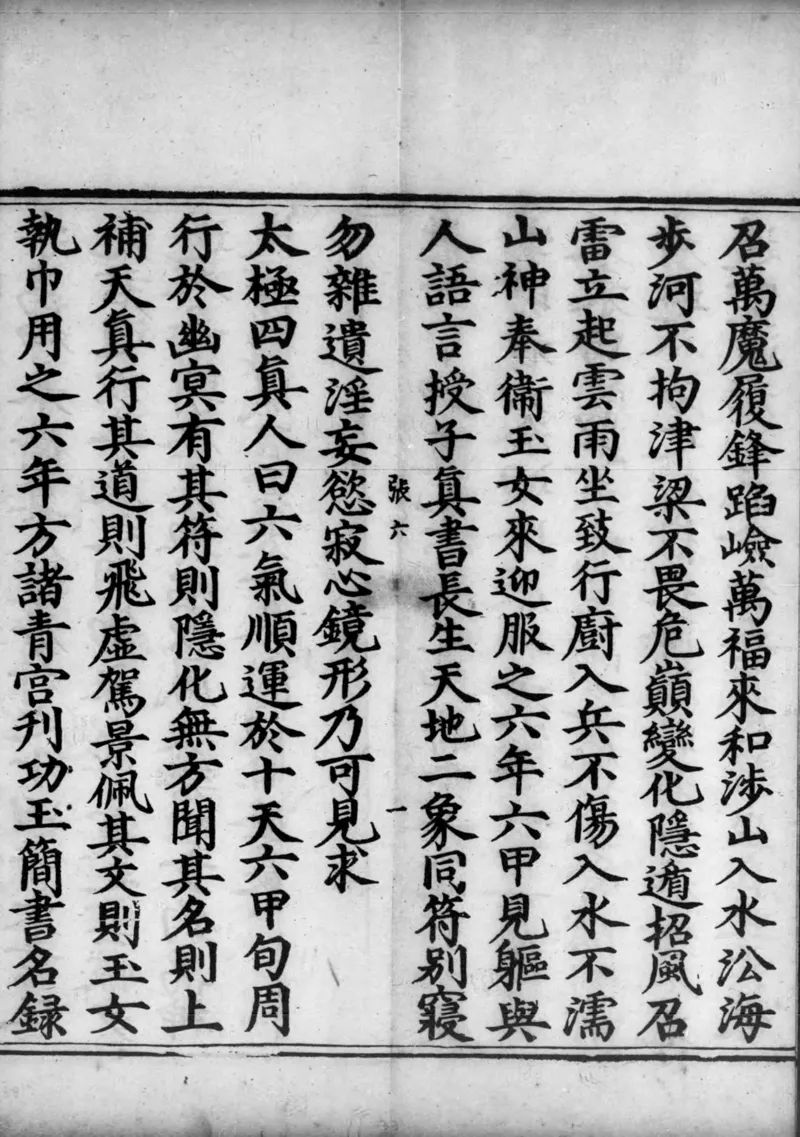 召萬魔履鋒蹈嶮萬福來和涉山入水㳂海
步河不拘津梁不畏危巔變化隱遁招風召
雷立起雲雨坐致行廚入兵不傷入水不濡
山神奉衞玉女來迎服之六年六甲見軀與
人語言授子真書長生天地二象同符别寢
張六
一
勿雜遺淫妄慾寂心鏡形乃可見求
太極四真人曰六氣順運於十天六甲旬周
行於幽冥有其符則隱化無方聞其名則上
補天真行其道則飛虛駕景佩其文則玉女
執巾用之六年方諸青宫刋功玉簡書名録